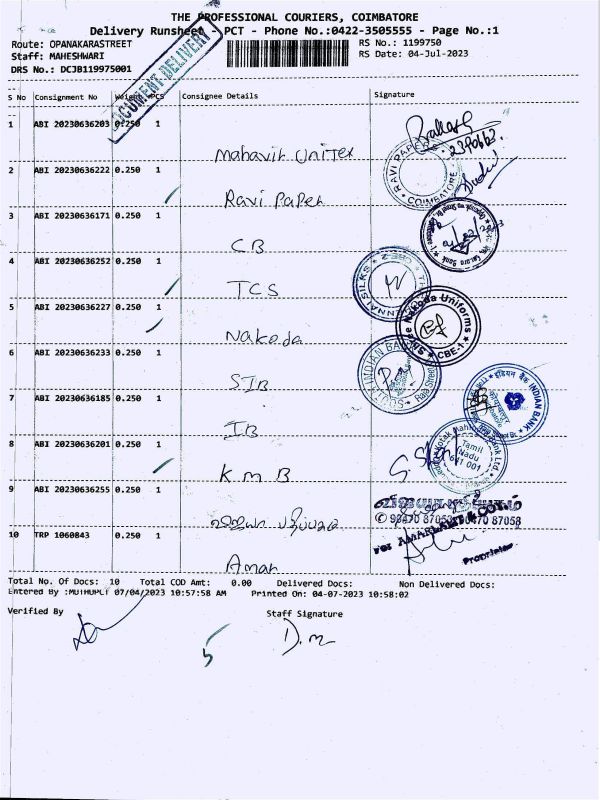 THE PROFESSIONAL COURIERS, COIMBATORE
Delivery Runsheet - PCT - Phone No.:0422-3505555 - Page No.:1
Route: OPANAKARASTREET
RS No.: 1199750
Staff: MAHESHWARI
RS Date: 04-Jul-2023
DRS No.: DCJB119975001
DOCUMENT DELIVERY
S No Consignment No Weight PCS Consignee Details Signature
1 ABI 20230636203 0.250 1
Mahavir Unitex
2 ABI 20230636222 0.250 1
RAVI PAPER
COIMBATORE
Ravi Paper
3 ABI 20230636171 0.250 1
CB
4 ABI 20230636252 0.250 1
TCS
5 ABI 20230636227 0.250 1
Nakoda Uniforms
CBE-1
Nakoda
6 ABI 20230636233 0.250 1
SIB
7 ABI 20230636185 0.250 1
इंडियन बैंक INDIAN BANK
IB
8 ABI 20230636201 0.250 1
Tamil
Nadu
641 001
KMB
9 ABI 20230636255 0.250 1
98470 87058
10 TRP 1060843 0.250 1
Proprietor
Aman
Total No. Of Docs: 10 Total COD Amt: 0.00 Delivered Docs: Non Delivered Docs:
Entered By :MUTHUPCT 07/04/2023 10:57:58 AM Printed On: 04-07-2023 10:58:02
Verified By
Staff Signature